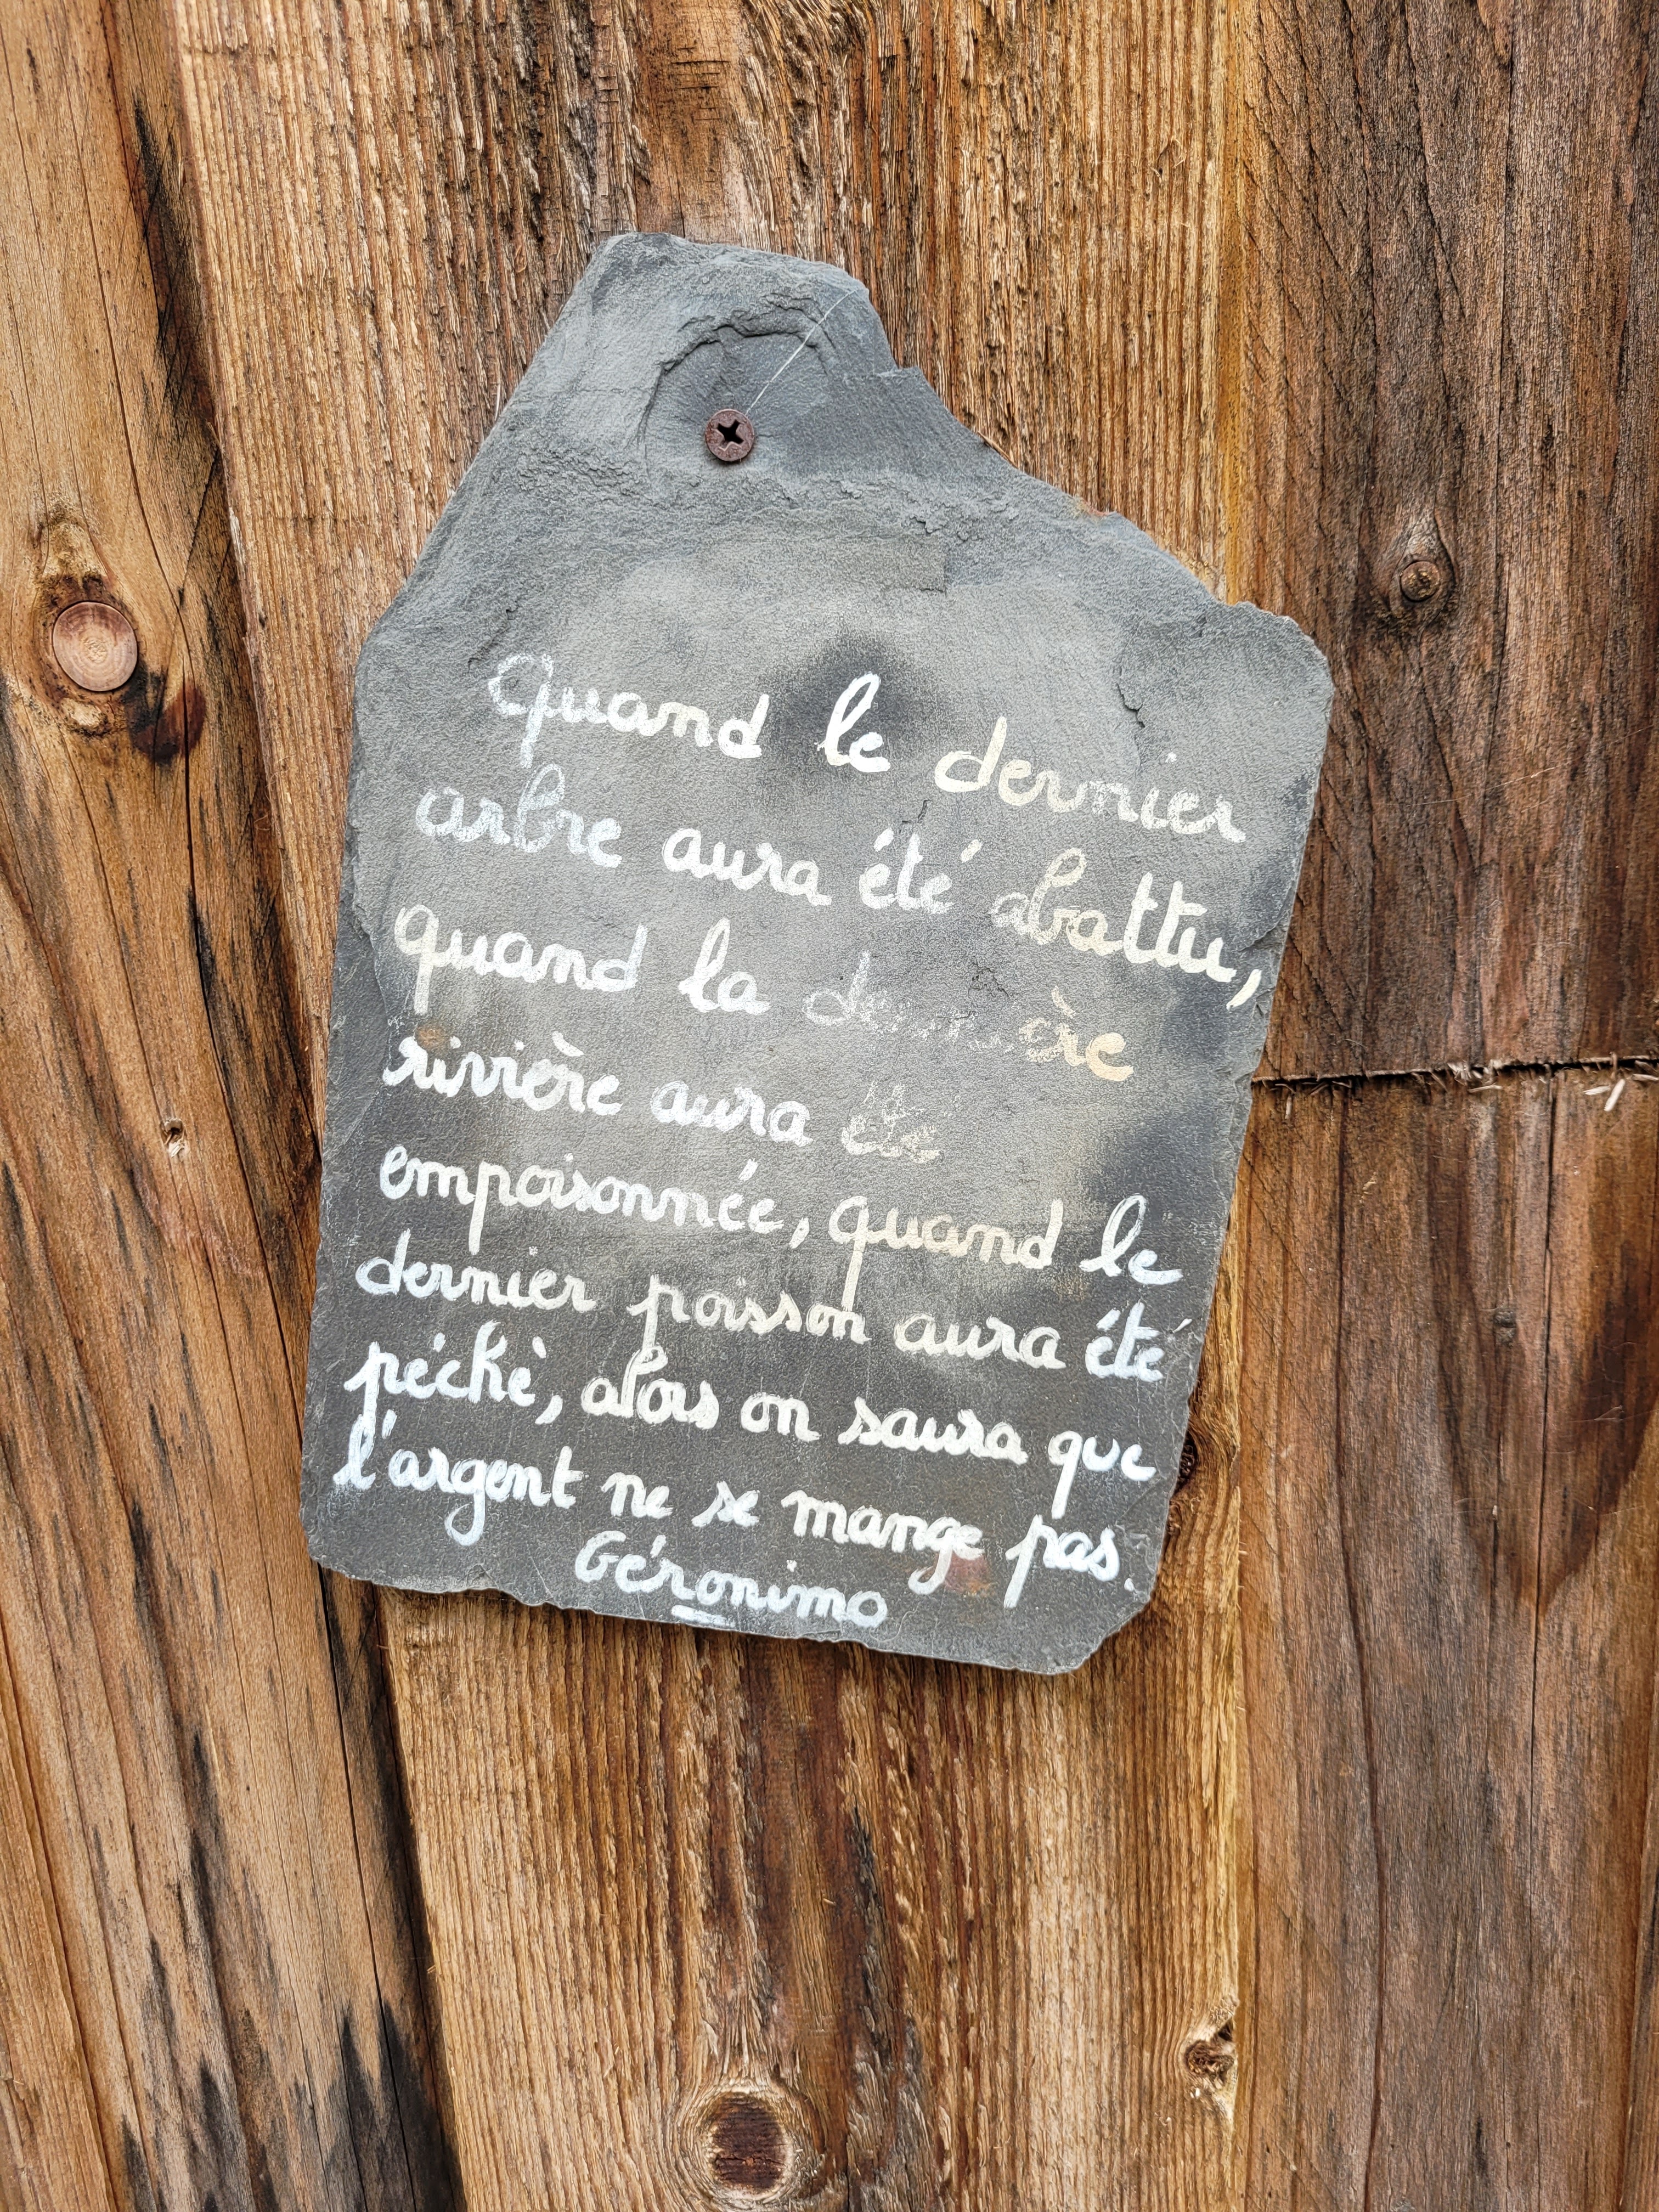 Quand le dernier
arbre aura été abattu,
quand la dernière
rivière aura été
empoisonnée, quand le
dernier poisson aura été
péché, alors on saura que
l'argent ne se mange pas.
Géronimo